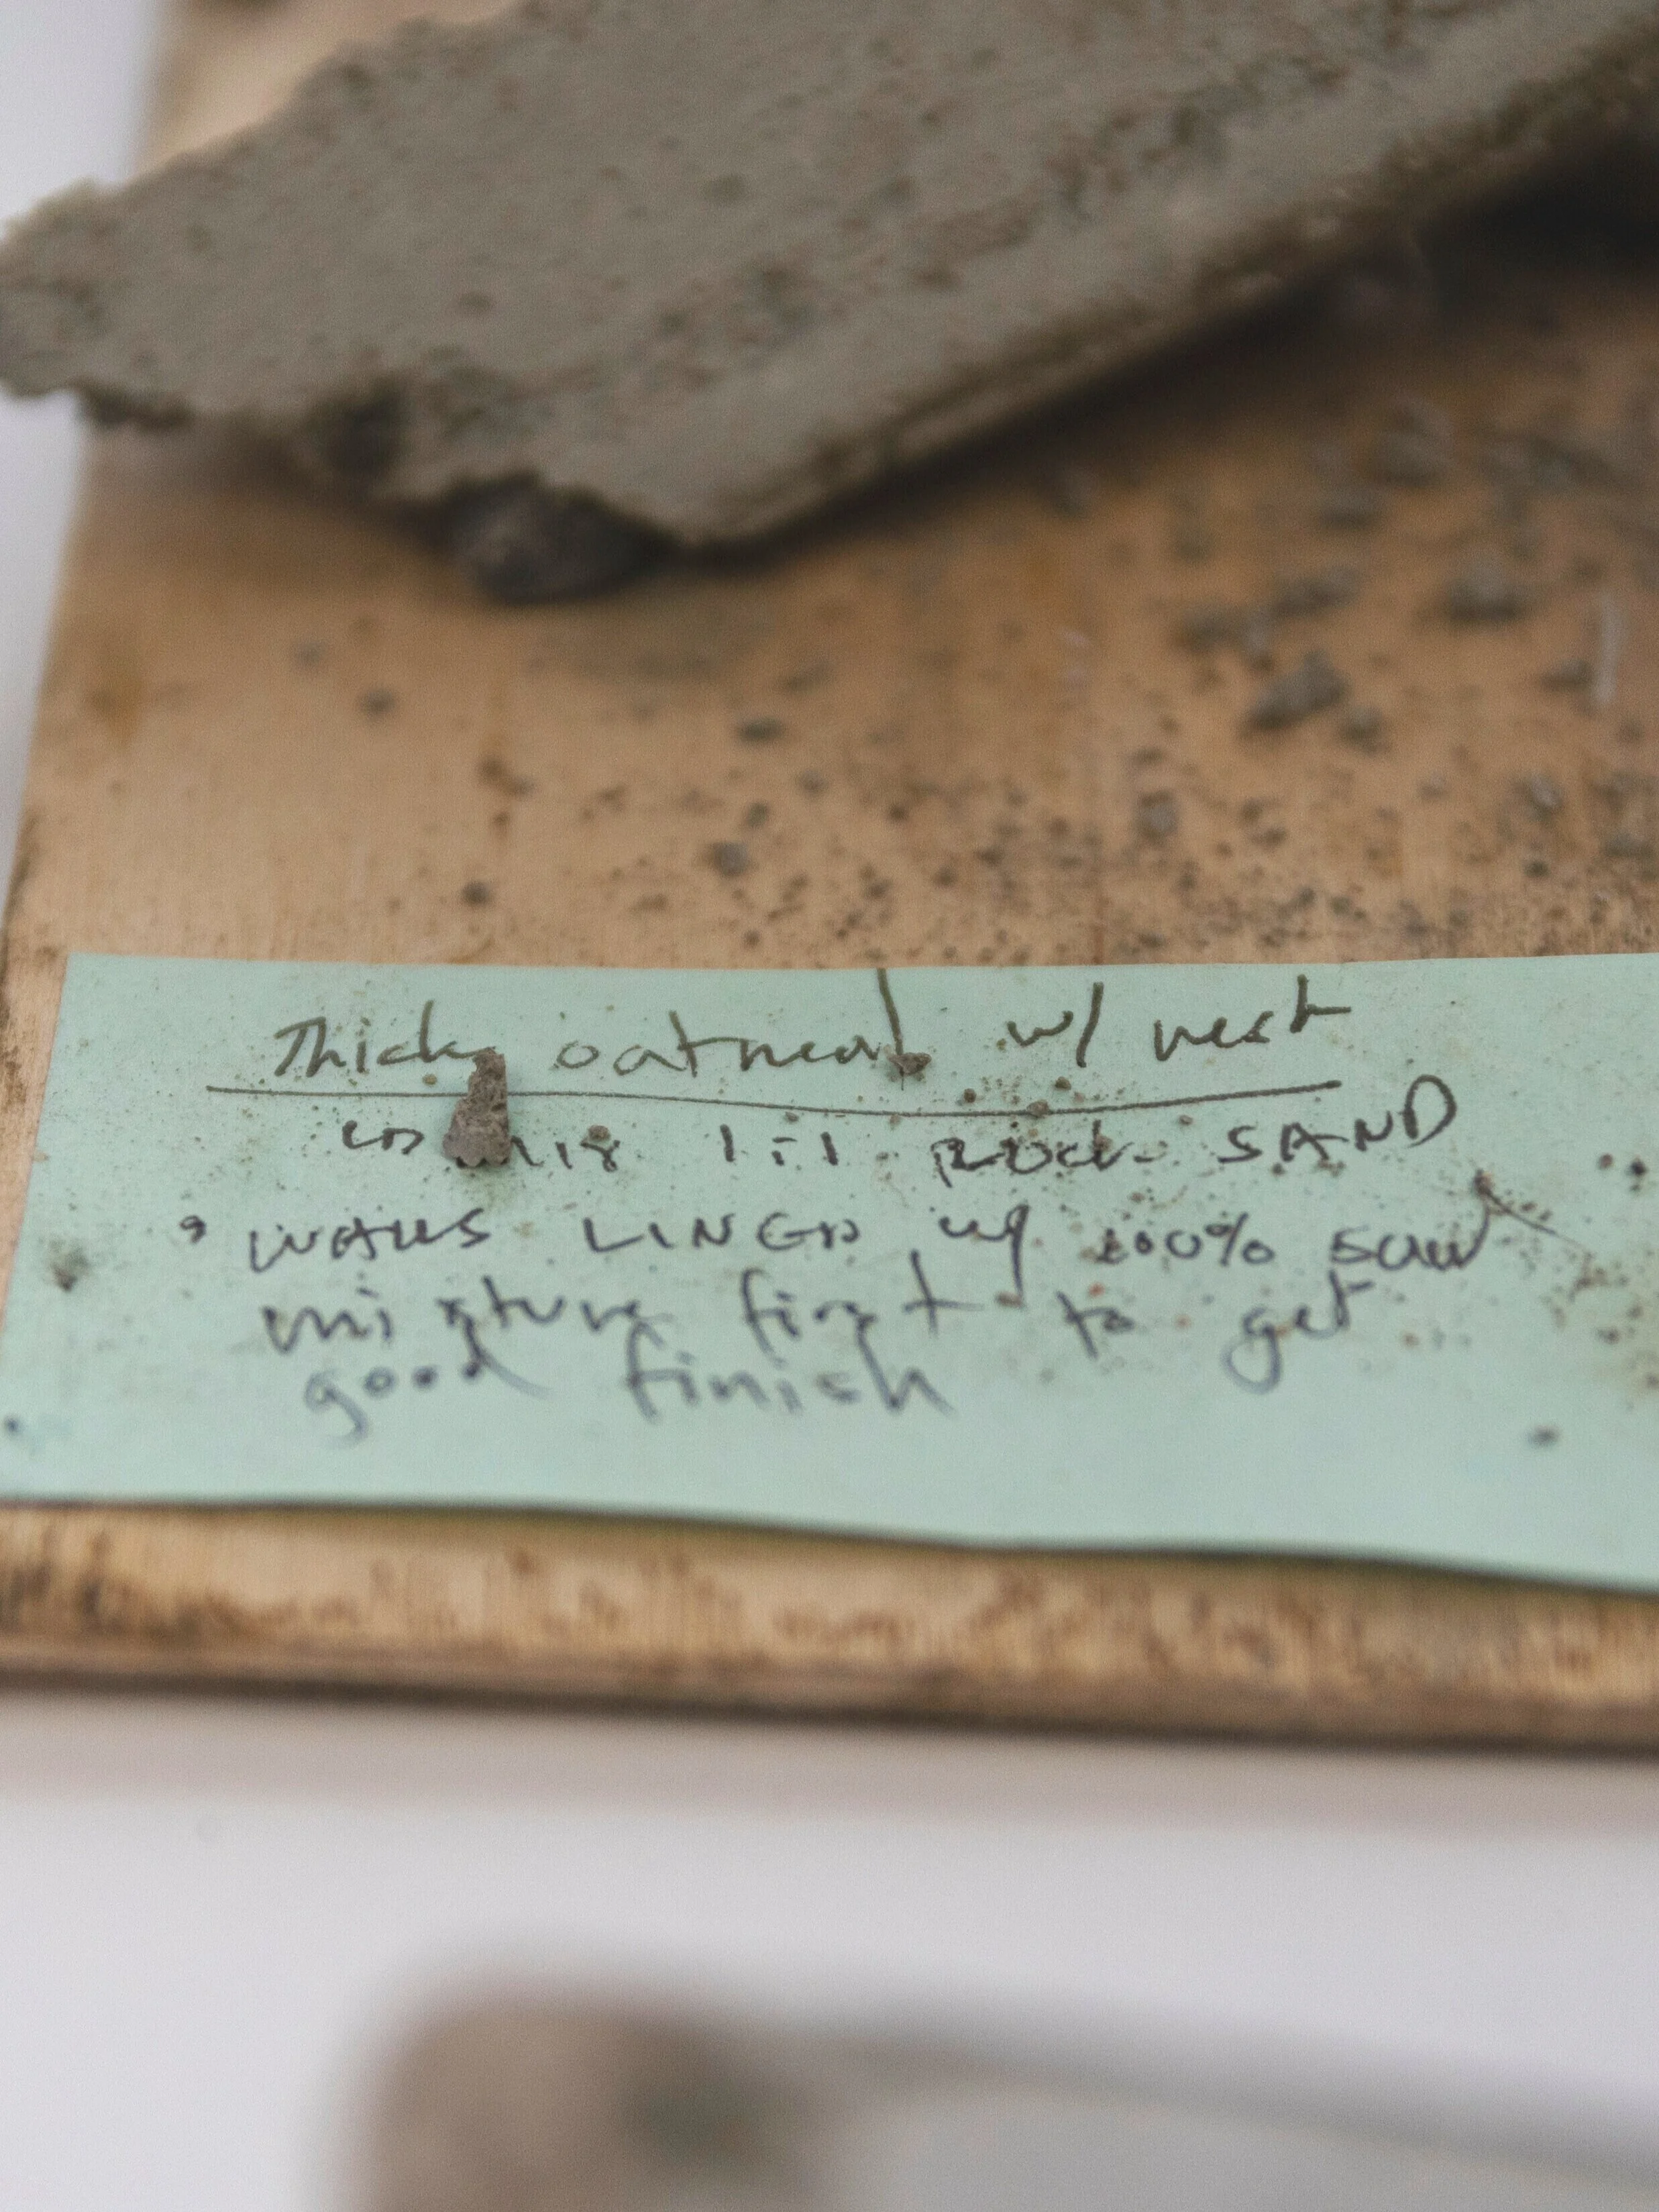 Thick oatmeal w/ nest
1:1 Rock SAND
• WALLS LINED w/ 100% SAW
mixture first to get
good finish